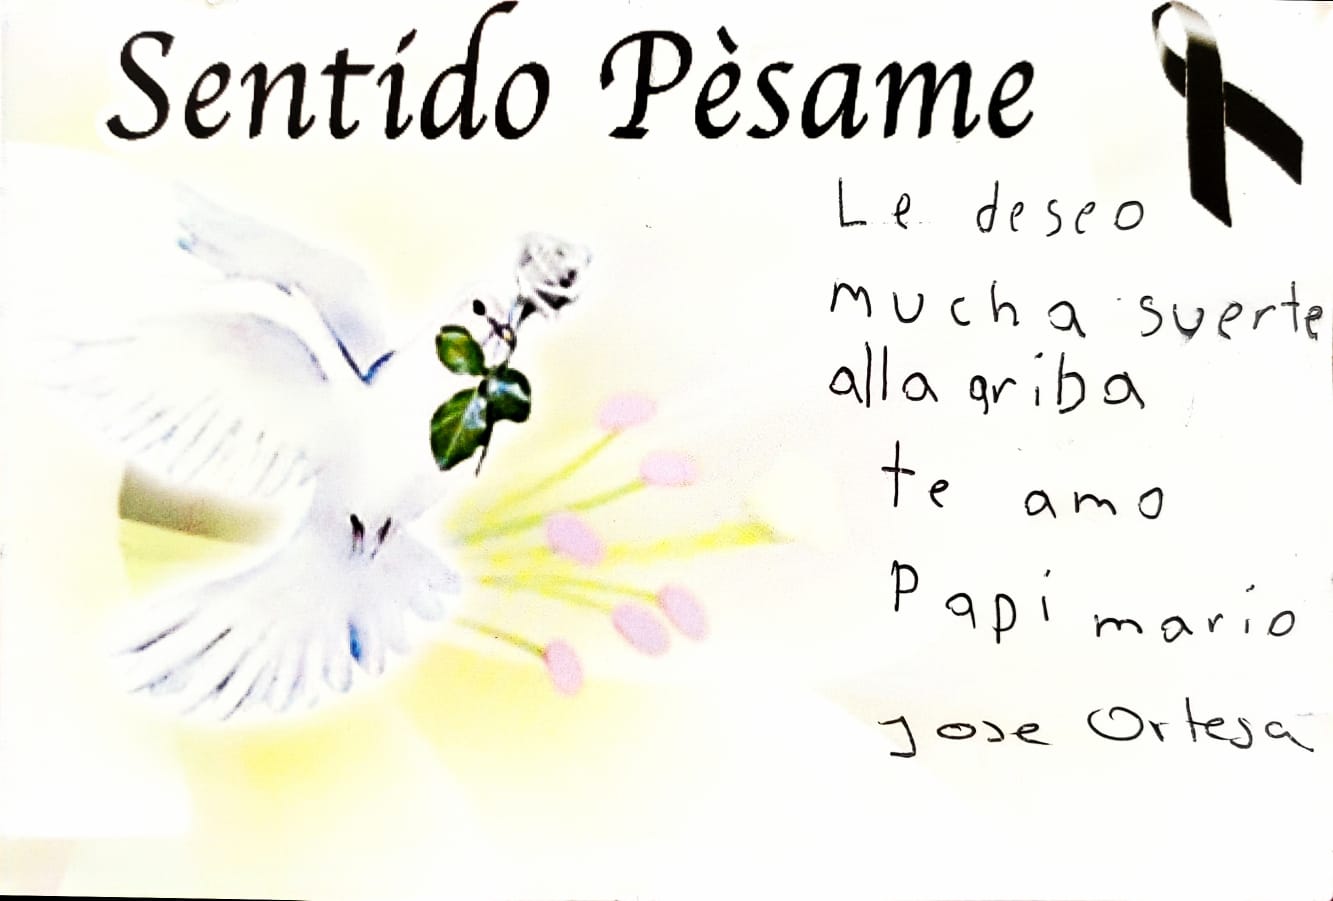 Sentido Pèsame
Le deseo
mucha suerte
alla griba
te amo
Papi mario
Jose Ortega